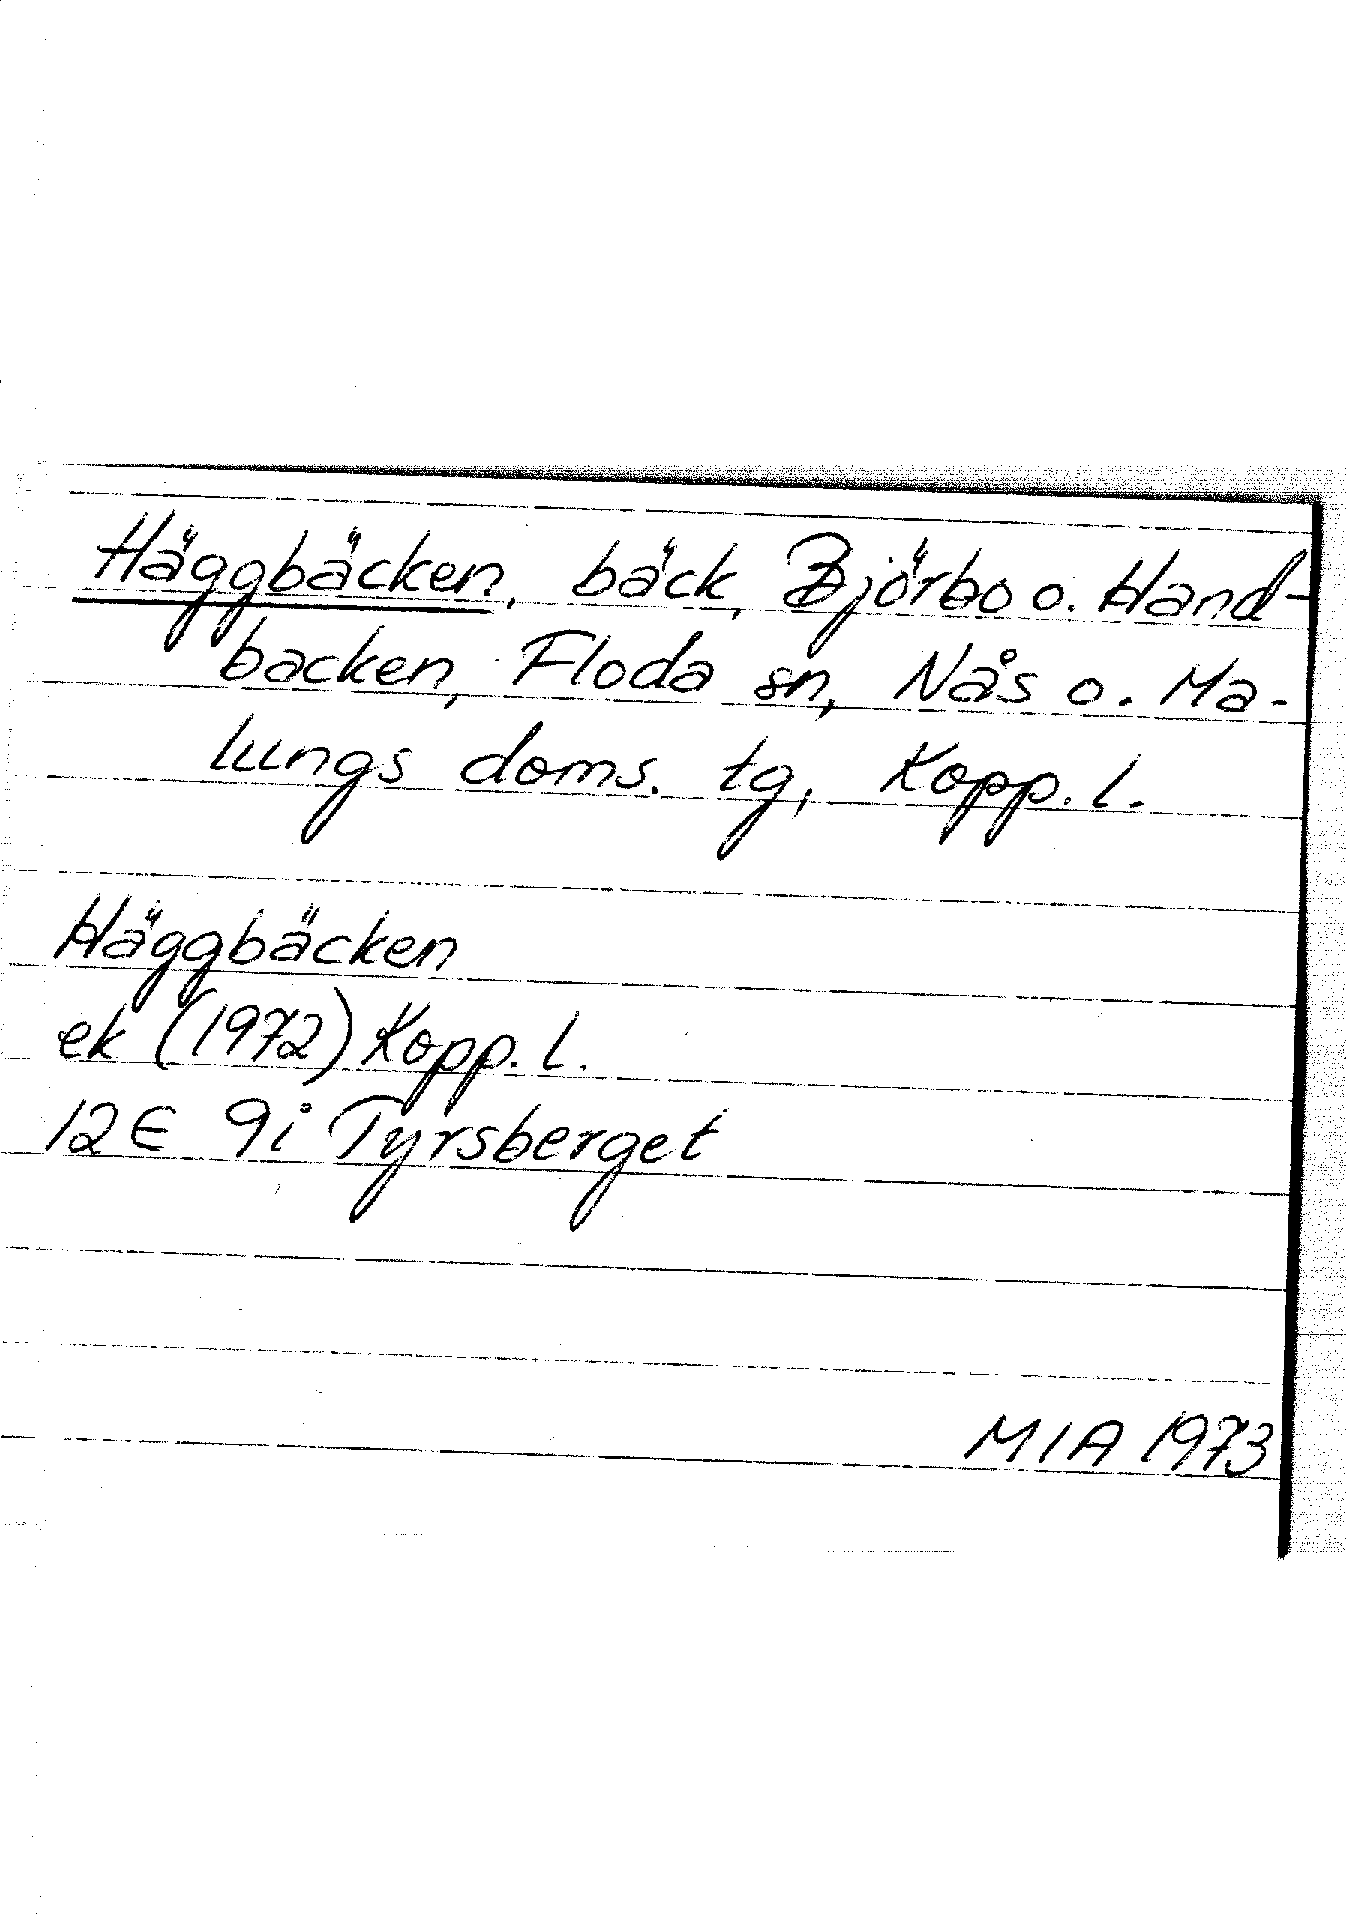 Häggbäcken, bäck, Björbo o. Hand-
backen, Floda sn, Nås o. Ma-
lungs doms. tg, Kopp. l.
Häggbäcken
ek (1972) Kopp. l.
12E 9i Tyrsberget
MIA 1973